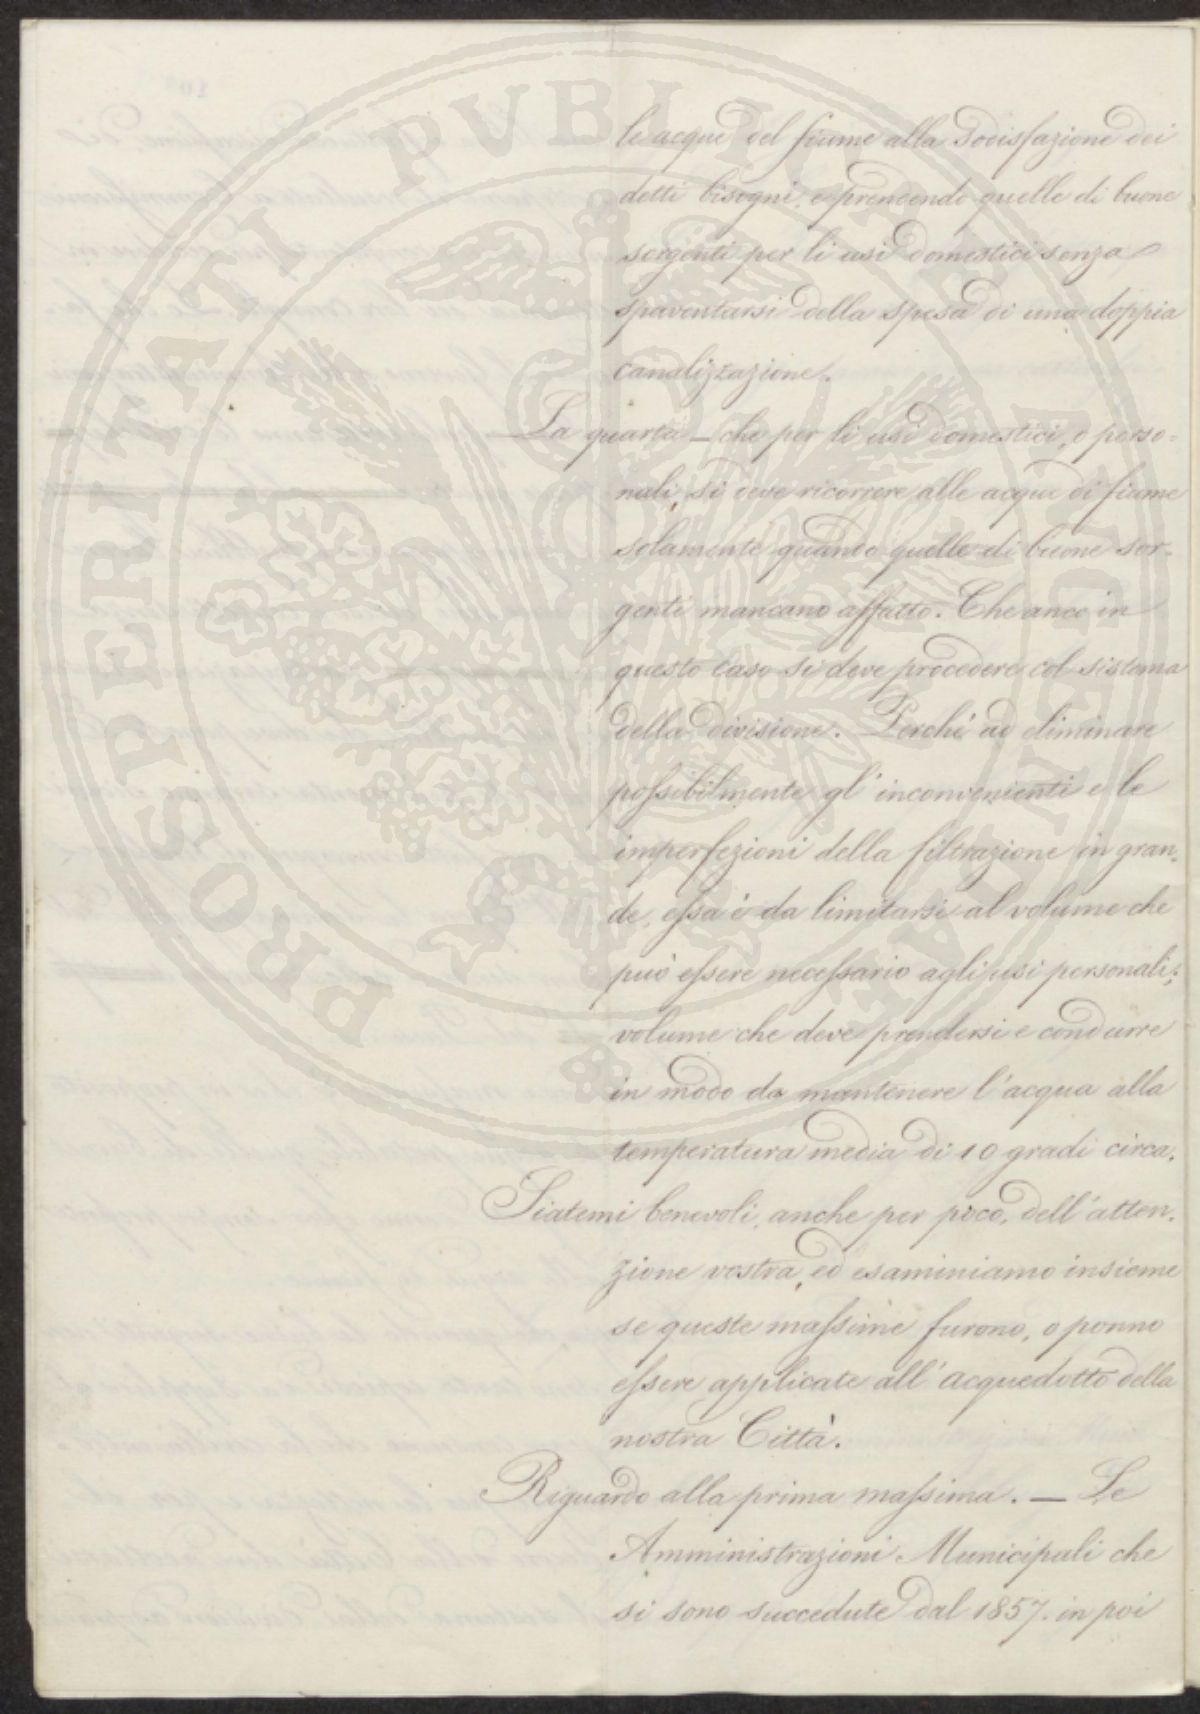 le acque del fiume alla sodisfazione dei
detti bisogni, e prendendo quelle di buone
sorgenti per li usi domestici senza
spaventarsi della spesa di una doppia
canalizzazione.
La quarta — che per li usi domestici, o perso=
nali, si deve ricorrere alle acque di fiume
solamente quando quelle di buone sor=
genti mancano affatto. Che anco in
questo caso si deve procedere col sistema
della divisione. Perchè ad eliminare
possibilmente gl'inconvenienti e le
imperfezioni della filtrazione in gran=
de, essa è da limitarsi al volume che
può essere necessario agli usi personali;
volume che deve prendersi e condurre
in modo da mantenere l'acqua alla
temperatura media di 10 gradi circa.
Siatemi benevoli, anche per poco, dell'atten=
zione vostra, ed esaminiamo insieme
se queste massime furono, o ponno
essere applicate all'acquedotto della
nostra Città.
Riguardo alla prima massima. — Le
Amministrazioni Municipali che
si sono succedute dal 1857. in poi
PROSPERITATI PUBLICAE AUGENDAE